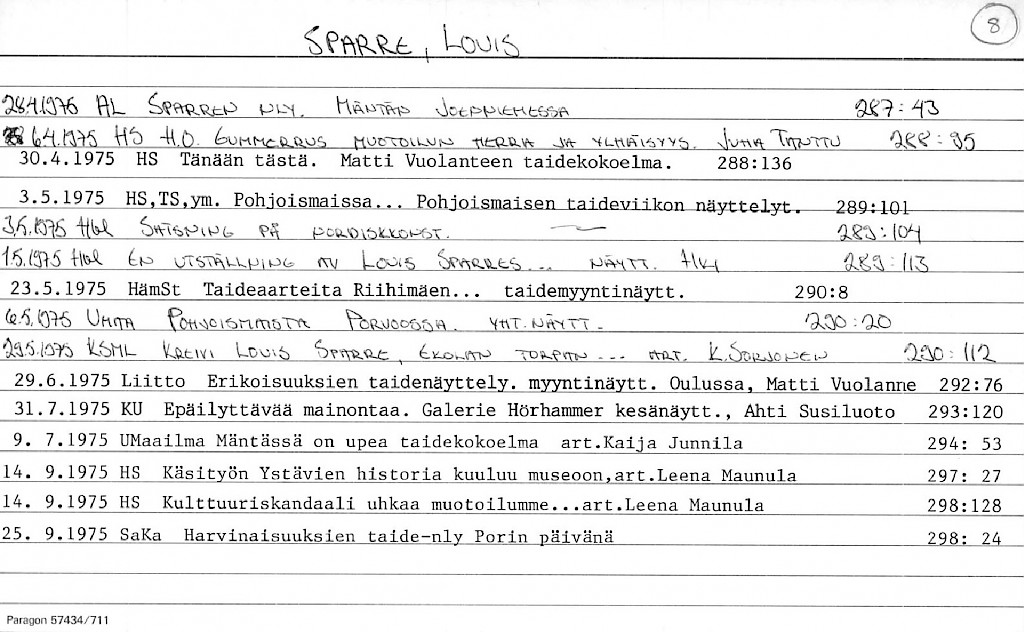 8
SPARRE, LOUIS
28.4.1975 AL SPARREN NLY. MÄNTÄN JOENNIEMESSÄ 287:43
6.4.1975 HS H.O. GUMMERRUS MUOTOILUN HERRA JA YLHÄISYYS. JUHA TANTTU 288:95
30.4.1975 HS Tänään tästä. Matti Vuolanteen taidekokoelma. 288:136
3.5.1975 HS,TS,ym. Pohjoismaissa... Pohjoismaisen taideviikon näyttelyt. 289:101
3.5.1975 Hbl SATSNING PÅ NORDISKKONST. 289:104
1.5.1975 Hbl EN UTSTÄLLNING AV LOUIS SPARRES... NÄYTT. 289:113
23.5.1975 HämSt Taideaarteita Riihimäen... taidemyyntinäytt. 290:8
6.5.1975 UMAA POHJOISMAISTA PORVOOSSA. YHT. NÄYTT. 290:20
29.5.1975 KSML KREIVI LOUIS SPARRE, EKOLAN TORPAN... ART. K. SORJONEN 290:112
29.6.1975 Liitto Erikoisuuksien taidenäyttely. myyntinäytt. Oulussa, Matti Vuolanne 292:76
31.7.1975 KU Epäilyttävää mainontaa. Galerie Hörhammer kesänäytt., Ahti Susiluoto 293:120
9. 7.1975 UMaailma Mäntässä on upea taidekokoelma art.Kaija Junnila 294: 53
14. 9.1975 HS Käsityön Ystävien historia kuuluu museoon,art.Leena Maunula 297: 27
14. 9.1975 HS Kulttuuriskandaali uhkaa muotoilumme...art.Leena Maunula 298:128
25. 9.1975 SaKa Harvinaisuuksien taide-nly Porin päivänä 298: 24
Paragon 57434/711